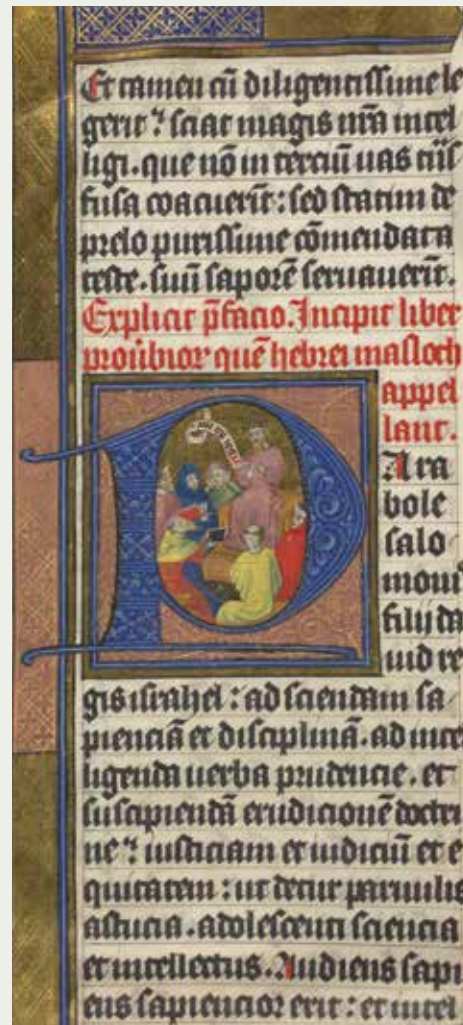 Et tamen cū diligentissime le
gerit ? sciat magis nr̄a intel
ligi . que nō in terciū uas trās
fusa coacuerīt : sed statim de
prelo purissime cōmendata
teste . suū saporē seruauerīt .
Explicit p̄facio . Incipit liber
prouerbior quē hebrei masloth
appel
lant .
Para
bole
salo
monis
filij da
uid re
gis israhel : ad sciendam sa
pienciā et disciplinā . ad inte
ligenda uerba prudencie . et
suscipiendā erudicionē doctri
ne ? iusticiam et iudiciū et e
quitatem : ut detur paruulis
astucia . adolescenti sciencia
et intellectus . Audiens sapi
ens sapiencior erit : et intel